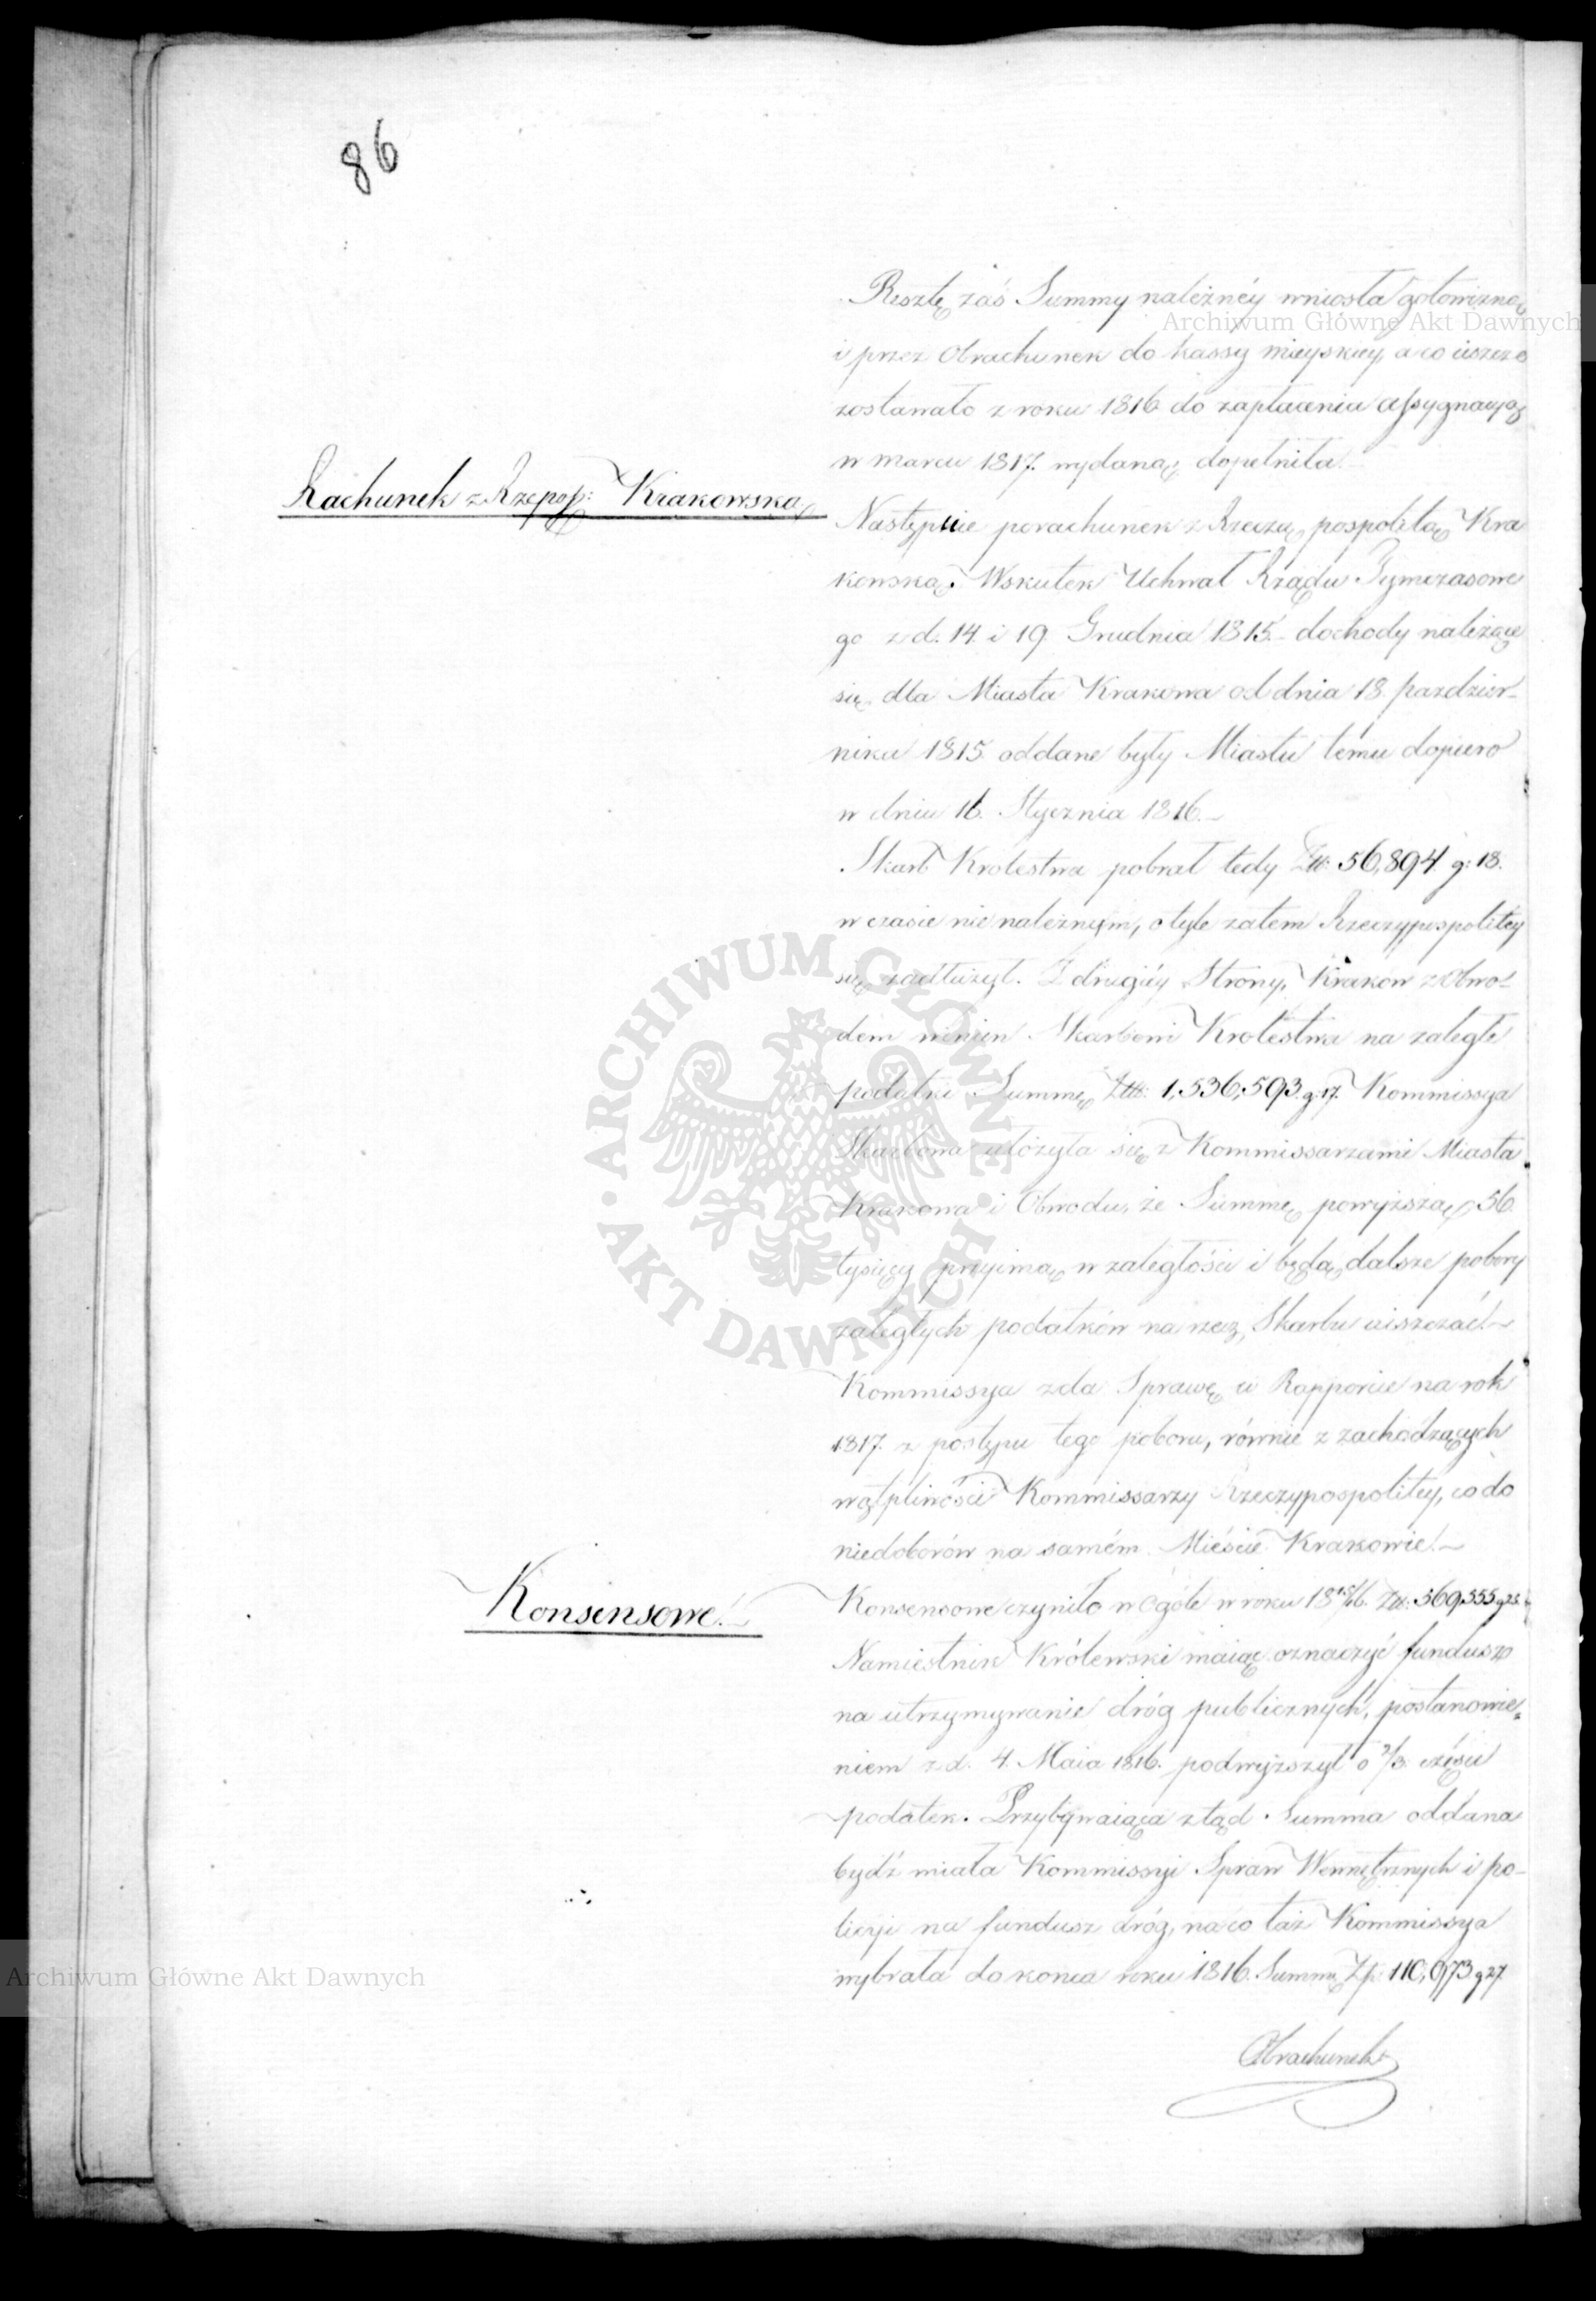 86
Resztę zaś Summy należnéy wniosła gotowizną
i przez Obrachunek do kassy mieyskiey, a co ieszcze
zostawało z roku 1816 do zapłacenia assygnacyą
w marcu 1817. wydaną, dopełniła.
Rachunek z Rzepos: Krakowską
Następnie porachunek z Rzecząpospolitą Kra
kowską. Wskutek Uchwał Rządu Tymczasowe
go z d. 14. i 19. Grudnia 1815. dochody należące
się dla Miasta Krakowa od dnia 18. pazdzier-
nika 1815. oddane były Miastu temu dopiero
w dniu 16. Stycznia 1816.-
Skarb Krolestwa pobrał tedy Złł: 56,894. g: 18.
w czasie nienależnym, o tyle zatem Rzeczypospolitey
się zadłużył. Z drugiéy Strony, Krakow z Obwo-
dem winien Skarbowi Krolestwa na zaległe
podatki Summę Złł: 1,536,593. g: 17. Kommissya
Skarbowa ułożyła się z Kommissarzami Miasta
Krakowa i Obwodu, że Summę powyższą 56
tysięcy przyimą w zaległości i będą dalsze pobory
zaległych podatków na rzecz Skarbu uiszczać.-
Kommissya zda Sprawę w Rapporcie na rok
1817. z postępu tego poboru, równie z zachodzących
wątpliwości Kommissarzy Rzeczypospolitey, co do
niedoborów na samém Mieście Krakowie.-
Konsensowe.-
Konsensowe czyniło w Ogóle w roku 18 15/16. Złł: 369,555 g 25.
Namiestnik Królewski maiąc oznaczyć fundusz
na utrzymywanie dróg publicznych, postanowie-
niem z d. 4. Maia 1816. podwyższył o 2/3. części
podatek. Przybywaiąca ztąd Summa oddana
bydź miała Kommissyi Spraw Wewnętrznych i po-
licyi na fundusz dróg, na co taż Kommissya
wybrała do końca roku 1816. Summę Zp. 110,973 g 27.
Obrachunek
Archiwum Główne Akt Dawnych
ARCHIWUM GŁÓWNE · AKT DAWNYCH ·
Archiwum Główne Akt Dawnych